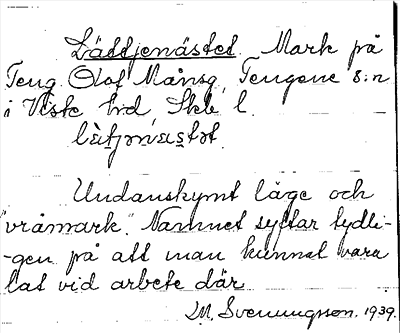 Lättjenästet. Mark på
Teng Olof Månsg, Tengene s:n
i Viste hd, Skb l.
Undanskymt läge och
"vråmark". Namnet syftar tydli-
-gen på att man kunnat vara
lat vid arbete där
M. Svenungsson. 1939.